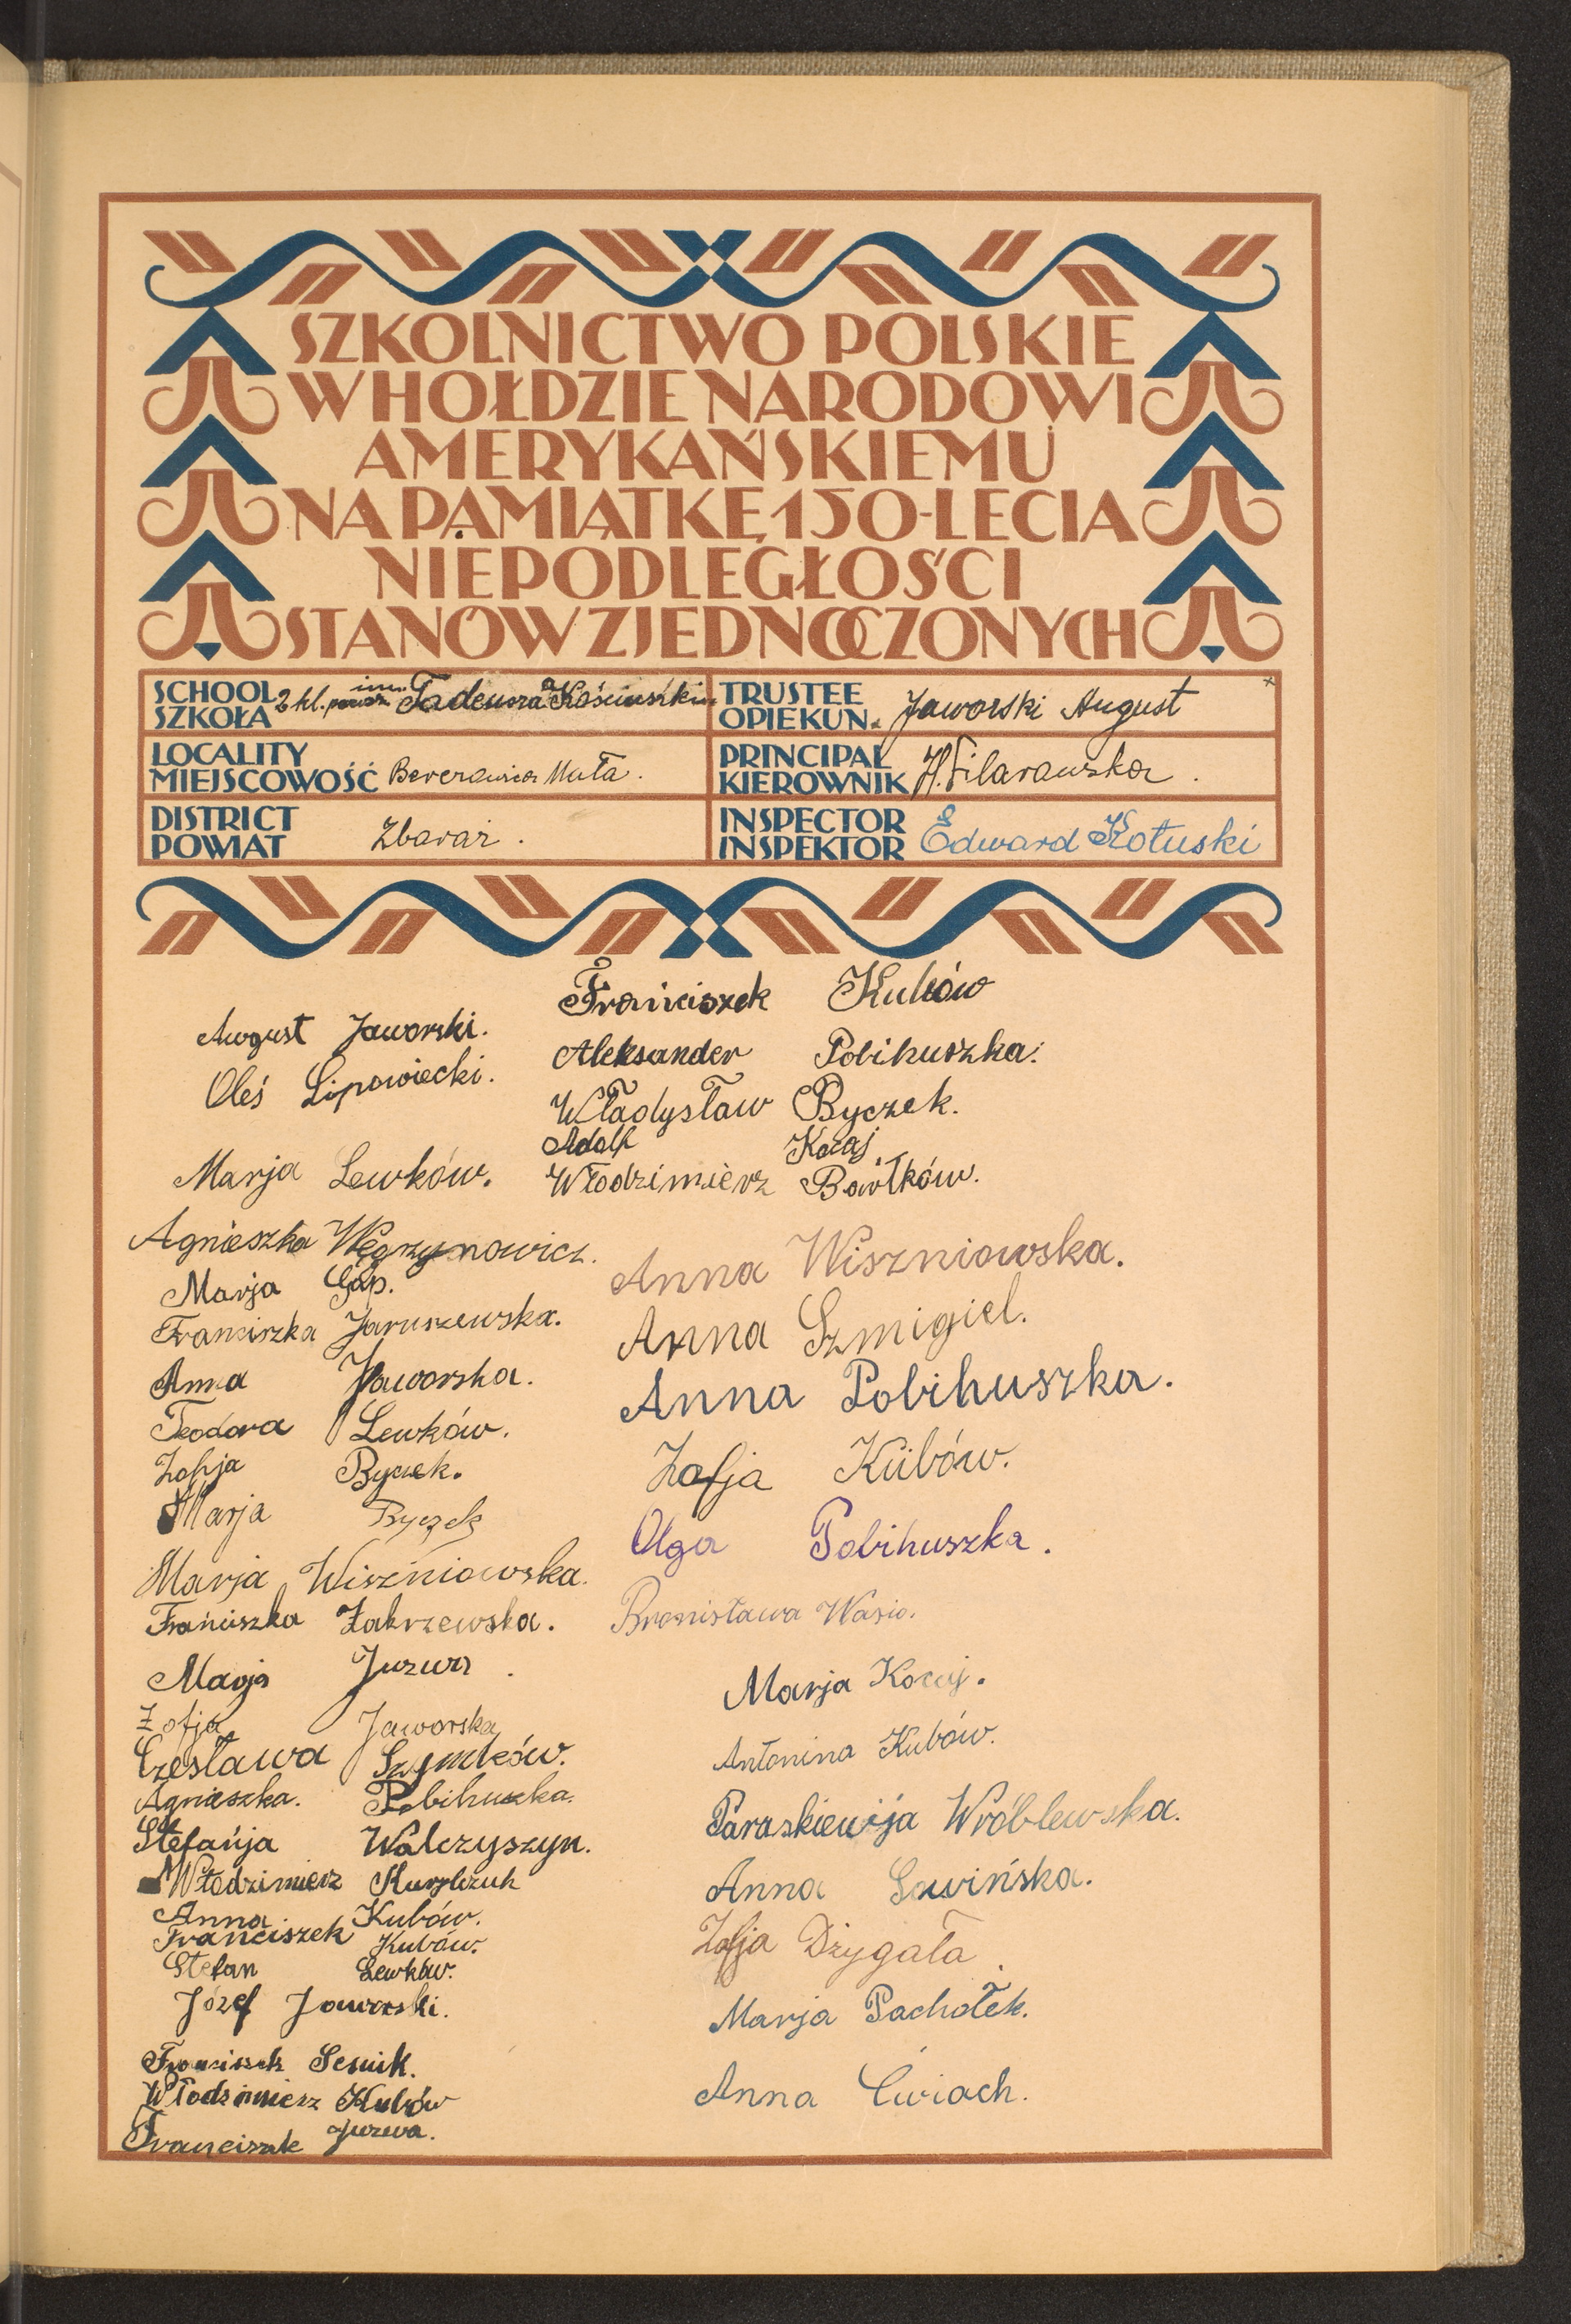 SZKOLNICTWO POLSKIE
W HOŁDZIE NARODOWI
AMERYKAŃSKIEMU
NA PAMIĄTKĘ 150-LECIA
NIEPODLEGŁOŚCI
STANÓW ZJEDNOCZONYCH
SCHOOL
SZKOŁA 2 kl. im. Tadeusza Kościuszki
TRUSTEE
OPIEKUN. Jaworski August
LOCALITY
MIEJSCOWOŚĆ Berezowica Mała.
PRINCIPAL
KIEROWNIK H. Filarowska.
DISTRICT
POWIAT Zbaraż.
INSPECTOR
INSPEKTOR Edward Kotuski
August Jaworski.
Oleś Lipowiecki.
Marja Lewków.
Agnieszka Węgrzynowicz.
Marja Gap.
Franciszka Jaruszewska.
Anna Jaworska.
Teodora Lewków.
Zofja Byczek.
Marja Byczek
Marja Wiszniowska.
Franciszka Zakrzewska.
Marja Juzwa.
Zofja Jaworska
Czesława Szymków.
Agnieszka. Pobihuszka.
Stefanja Walczyszyn.
Włodzimierz
Anna Kubów.
Franciszek Kubów.
Stefan Lewków.
Józef Jaworski.
Franciszek Lesnik.
Włodzimierz Kubów
Franciszek Juzwa.
Franciszek Kubów
Aleksander Pobihuszka.
Władysław Byczek.
Adolf Kocaj
Włodzimierz Bawłków.
Anna Wiszniowska.
Anna Szmigiel.
Anna Pobihuszka.
Zofja Kubów.
Olga Pobihuszka.
Bronisława Wasio.
Marja Kocaj.
Antonina Kubów.
Paraskiewija Wróblewska.
Anna Sawińska.
Zofja Dżygała.
Marja Pachołek.
Anna Ćwiach.